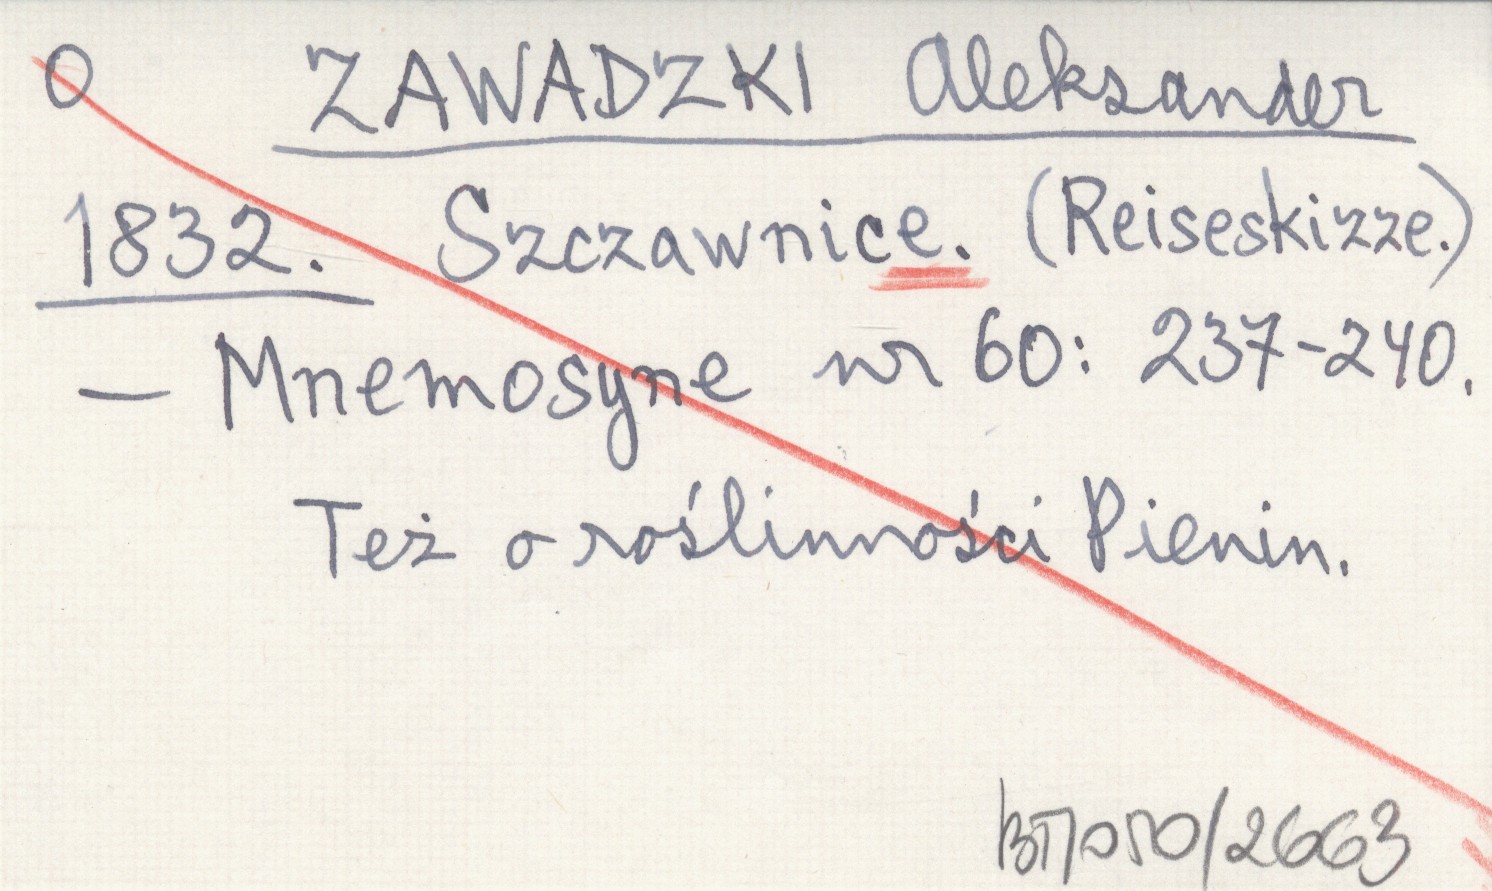 O ZAWADZKI Aleksander
1832. Szczawnice. (Reiseskizze.)
— Mnemosyne nr 60: 237-240.
Też o roślinności Pienin.
/2663